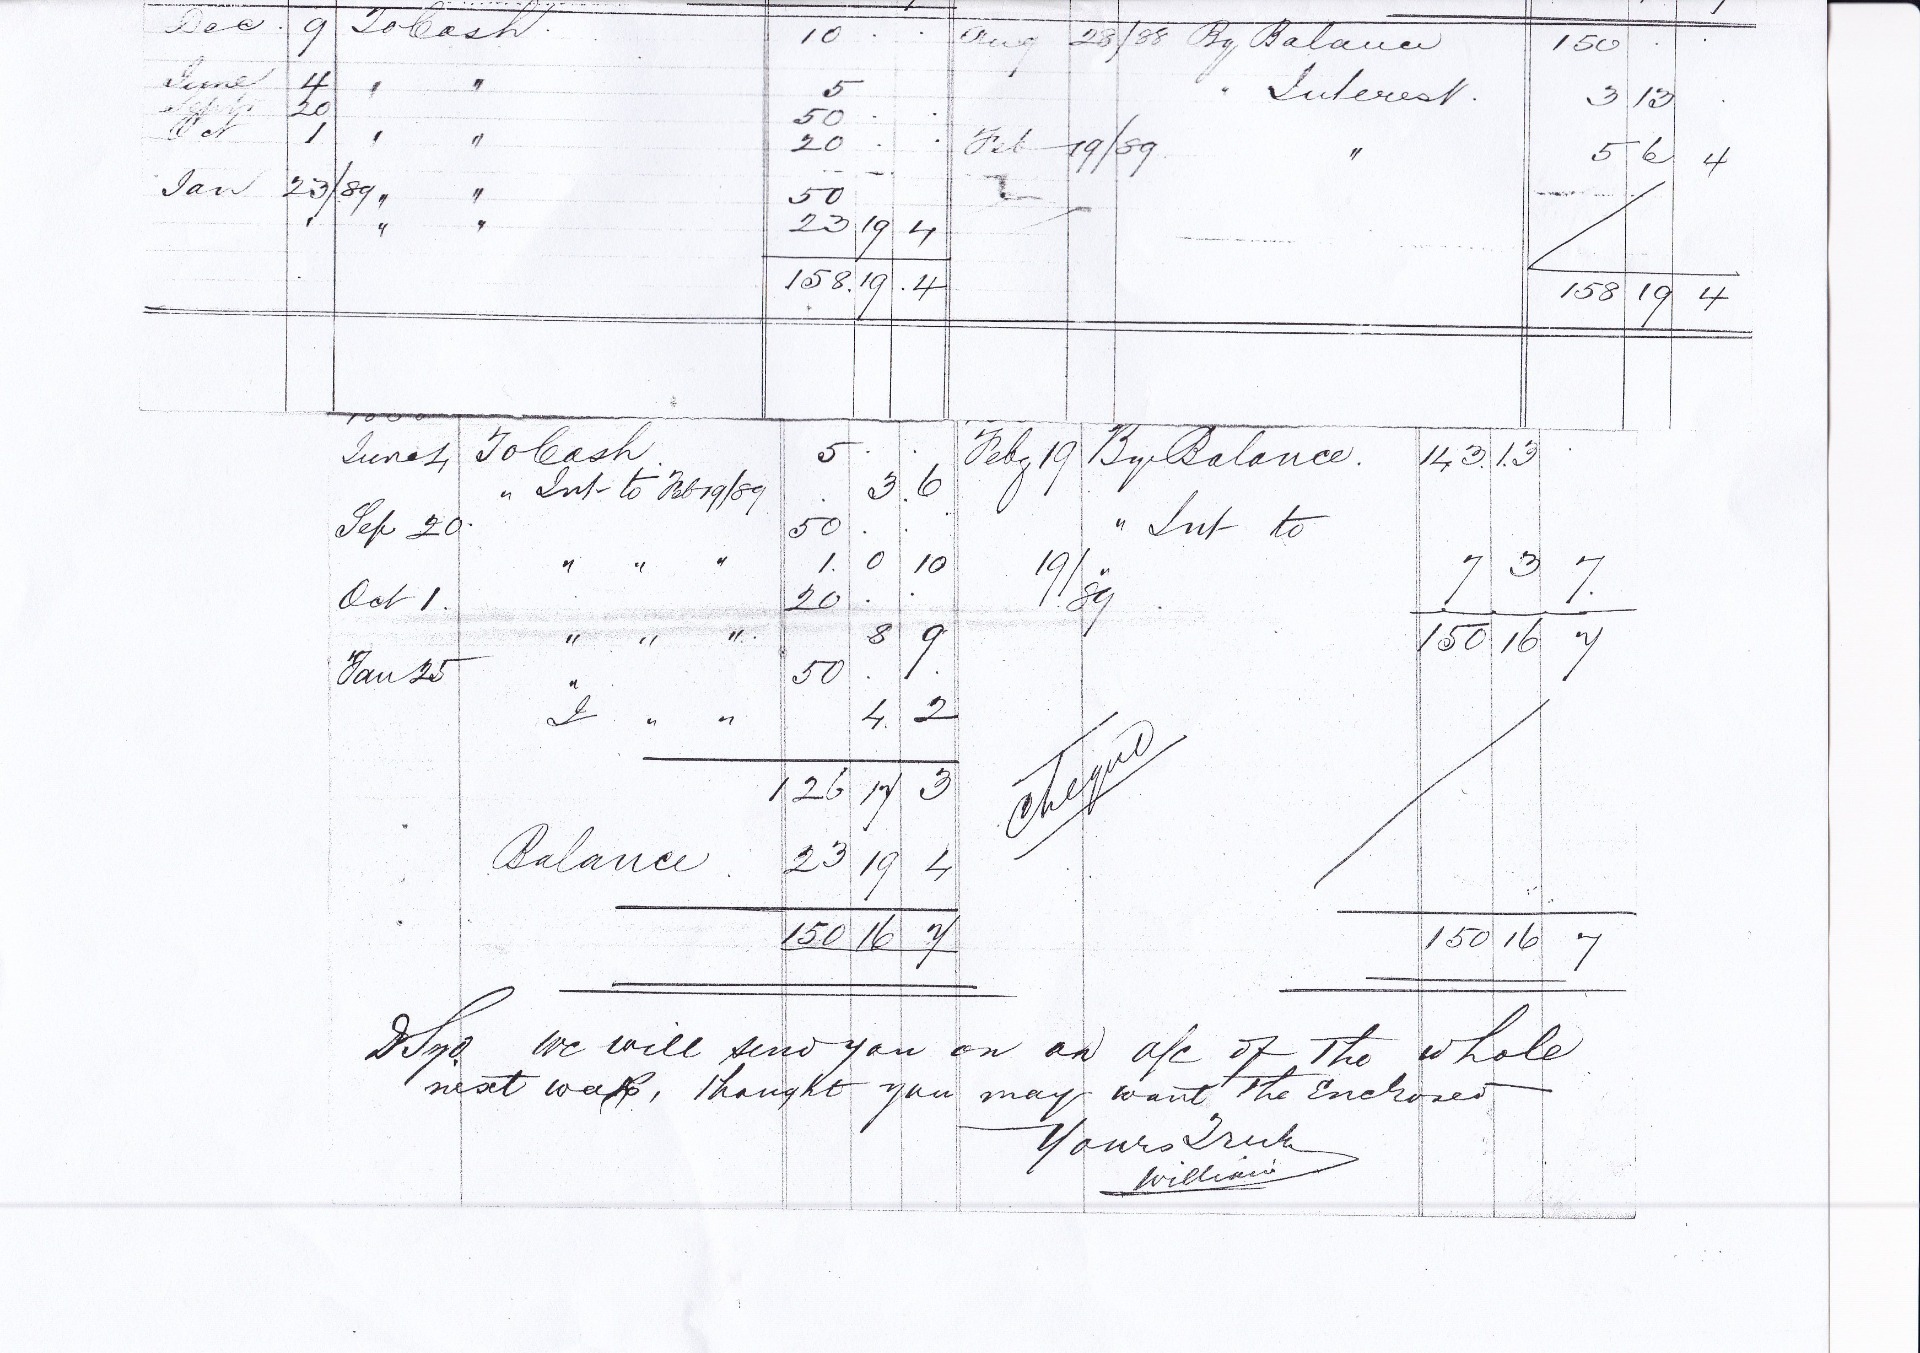 Dec. 9 To Cash. 10 . . Aug 28/88 By Balance 150 . .
June 4 " " 5 " Interest. 3 13 .
Sept 20 50 . .
Oct 1 " " 20 . . Feb 19/89 " 5 6 4
Jan 23/89 " " 50
" " " 23 19 4
158. 19 . 4 158 19 4
June 4 To Cash. 5 . . Feby 19 By Balance. 143. 13 .
" Int to Feb 19/89 . 3. 6
Sep 20. 50 . . " Int to
" " " 1. 0 10 19/89 " 7 3 7.
Oct 1. 20 . .
" " " 8 9 150 16 7
Jan 25 " 50 . .
I " " 4. 2
126 17 3 Cheque
Balance. 23 19 4
150 16 7 150 16 7
we will send you on an a/c of the whole
next week, thought you may want the Enclosed
Yours Truly
William